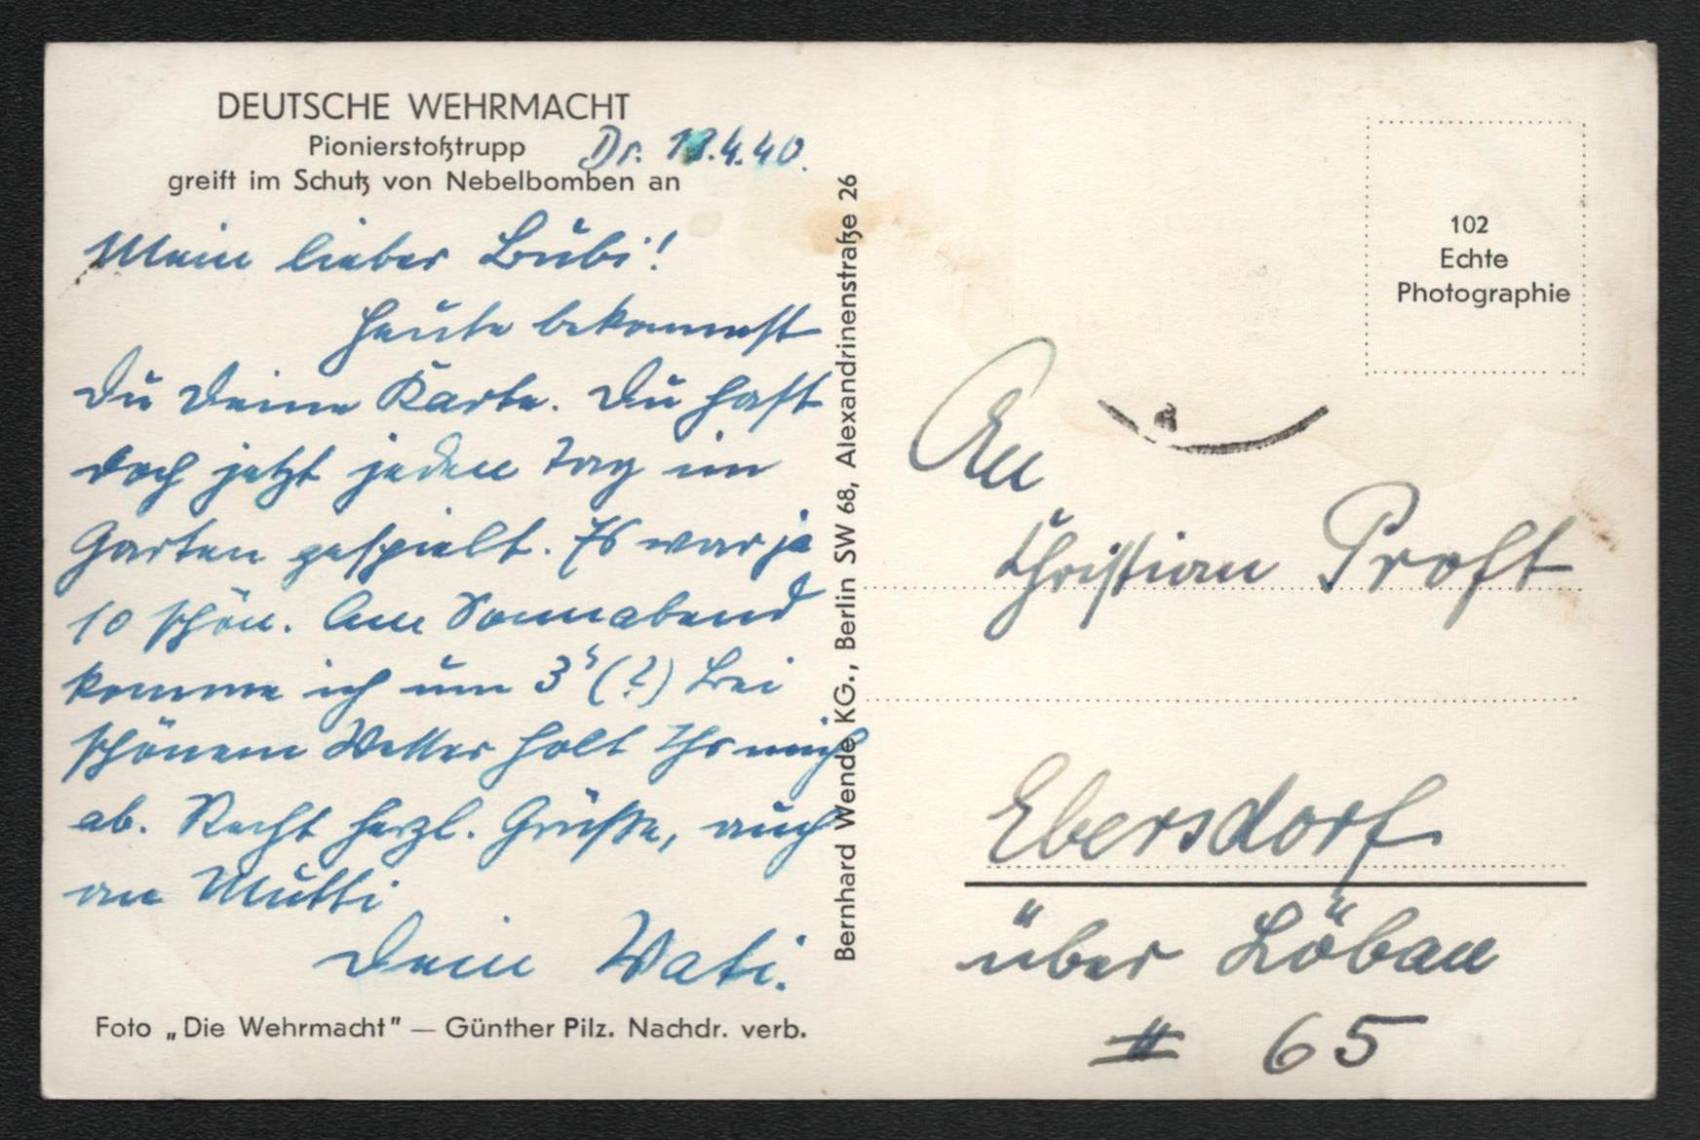 DEUTSCHE WEHRMACHT
Pionierstoßtrupp
greift im Schutz von Nebelbomben an
Dr. 18.4.40.
Mein lieber Bubi!
Heute bekommst
Du Deine Karte. Du hast
doch jetzt jeden Tag im
Garten gespielt. Es war ja
so schön. Am Sonnabend
komme ich um 3⁵ (?) Bei
schönem Wetter holt Ihr mich
ab. Recht herzl. Grüße, auch
an Mutti
Dein Vati.
Foto „Die Wehrmacht" — Günther Pilz. Nachdr. verb.
Bernhard Wende KG., Berlin SW 68, Alexandrinenstraße 26
102
Echte
Photographie
An
Christian Proft
Ebersdorf
über Löbau
# 65